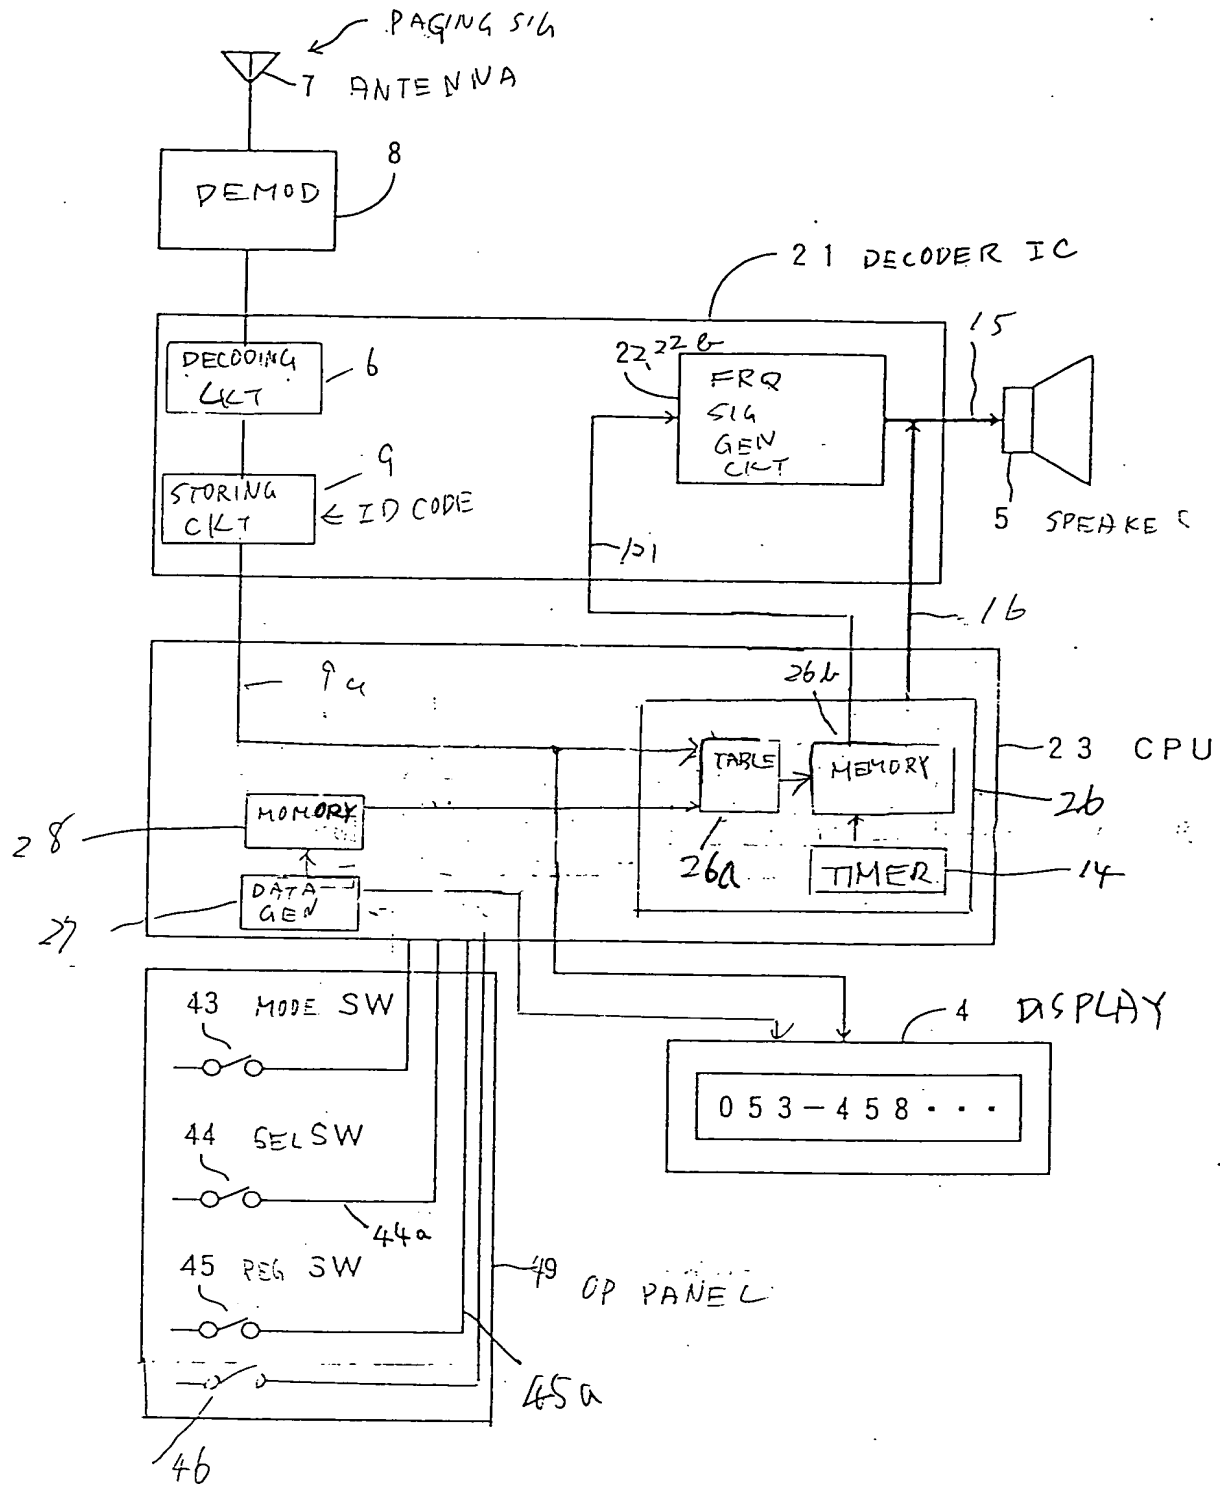 PAGING SIG
7 ANTENNA
8
DEMOD
21 DECODER IC
15
22, 22b
DECODING
CKT
6
FRQ
SIG
GEN
CKT
9
STORING
CKT
ID CODE
5 SPEAKER
121
16
9a
26b
23 CPU
TABLE
MEMORY
26
MOMORY
28
26a
TIMER
14
DATA
GEN
27
43 MODE SW
4 DISPLAY
053-458···
44 SEL SW
44a
45 REG SW
49 OP PANEL
45a
46